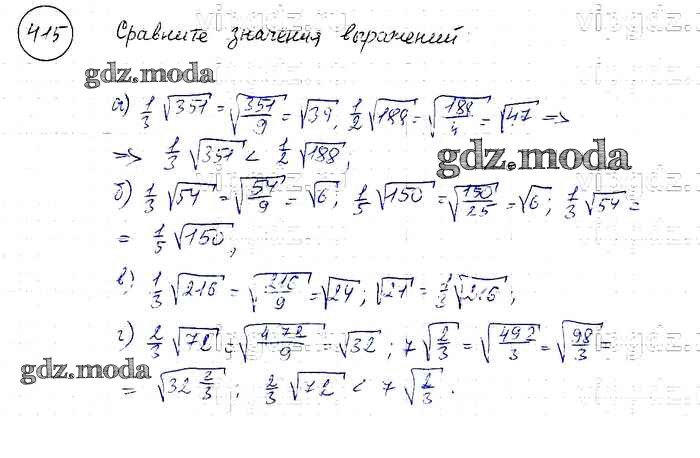 415 Сравните значения выражений
gdz.moda
а) 1/3 √351 = √(351/9) = √39, 1/2 √188 = √(188/4) = √47 =>
=> 1/3 √351 < 1/2 √188;
gdz.moda
б) 1/3 √54 = √(54/9) = √6; 1/5 √150 = √(150/25) = √6; 1/3 √54 =
= 1/5 √150;
в) 1/3 √216 = √(216/9) = √24; √21 = 1/3 √216;
г) 2/3 √72 = √(4·72/9) = √32; 7 √(2/3) = √(49·2/3) = √(98/3) =
gdz.moda
= √(32 2/3); 2/3 √72 < 7 √(2/3).